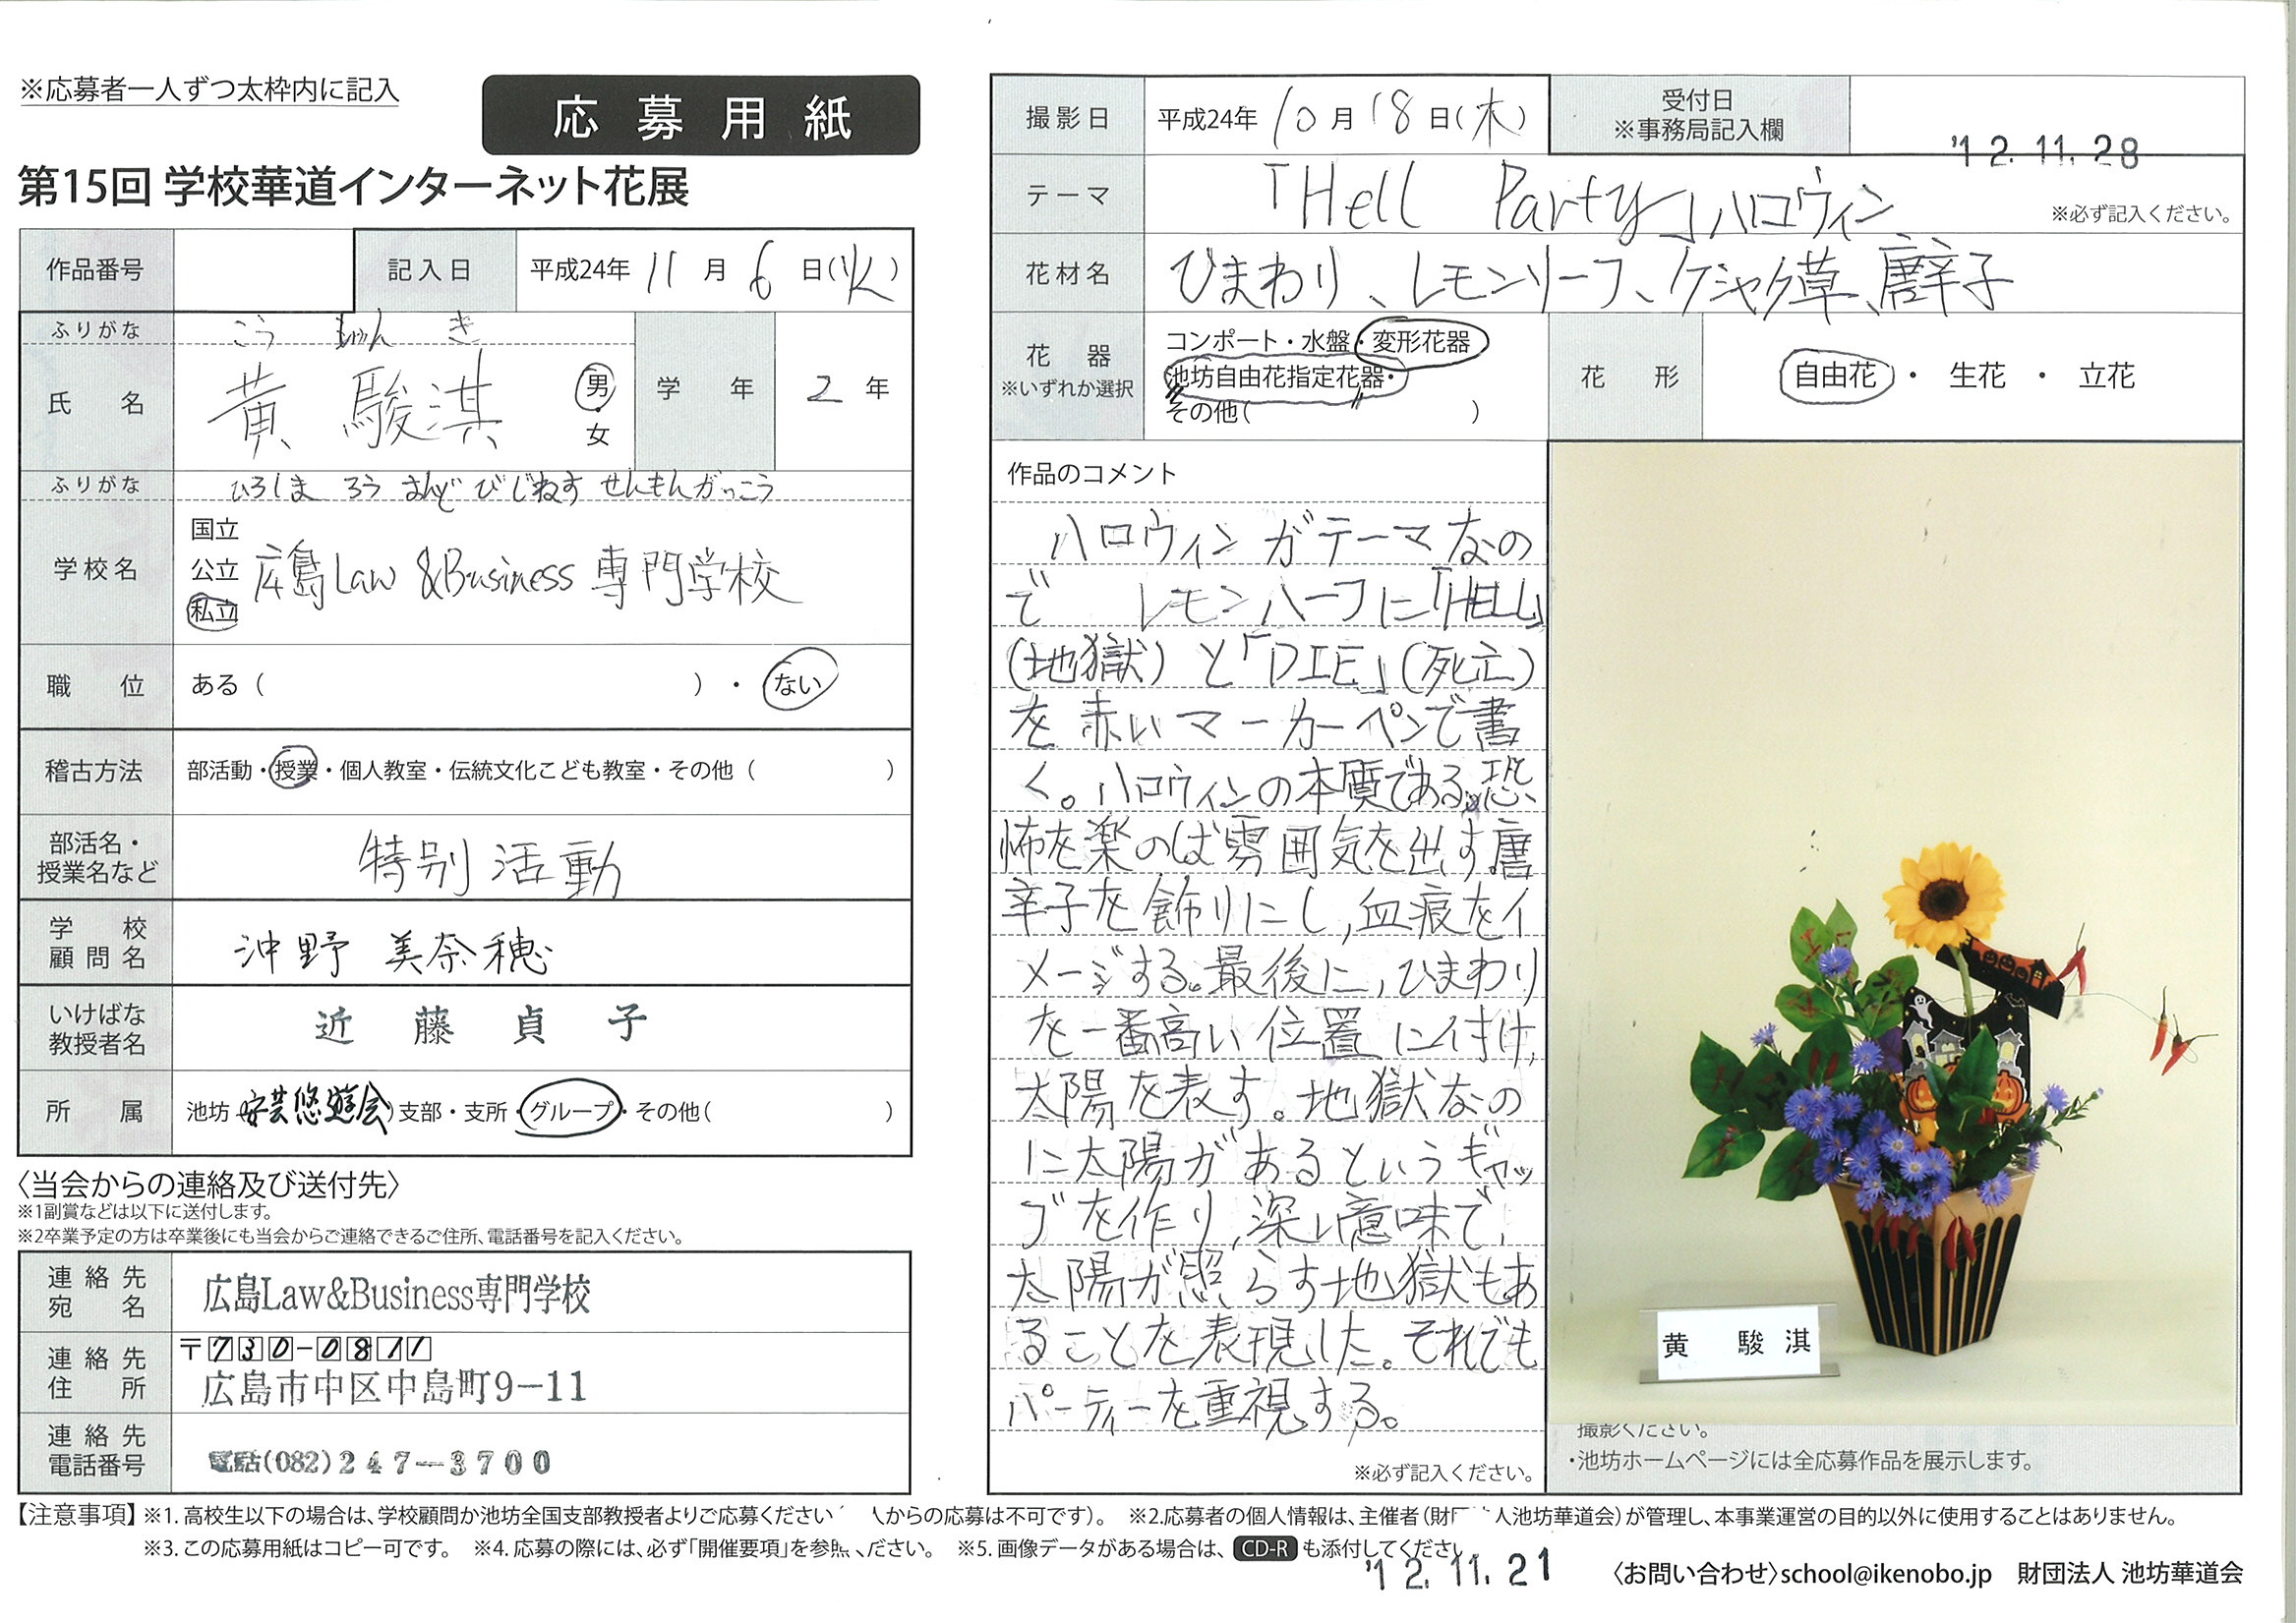 ※応募者一人ずつ太枠内に記入
応募用紙
第15回 学校華道インターネット花展
作品番号
記入日 平成24年 11月 6日(火)
ふりがな こう しゅん き
氏名 黄 駿淇 男・女
学年 2年
ふりがな ひろしま ろう あんど びじねす せんもんがっこう
学校名 国立 公立 私立 広島Law &Business 専門学校
職位 ある( )・ない
稽古方法 部活動・授業・個人教室・伝統文化こども教室・その他( )
部活名・授業名など 特別活動
学校顧問名 沖野 美奈穂
いけばな教授者名 近藤貞子
所属 池坊(安芸悠遊会)支部・支所・グループ・その他( )
〈当会からの連絡及び送付先〉
※1副賞などは以下に送付します。
※2卒業予定の方は卒業後にも当会からご連絡できるご住所、電話番号を記入ください。
連絡先宛名 広島Law&Business専門学校
連絡先住所 〒730-0811
広島市中区中島町9-11
連絡先電話番号 電話(082)247-3700
撮影日 平成24年 10月 18日(木)
受付日 ※事務局記入欄 '12.11.28
テーマ 「Hell Party」ハロウィン ※必ず記入ください。
花材名 ひまわり、レモンリーフ、クジャク草、唐辛子
花器 ※いずれか選択 コンポート・水盤・変形花器
池坊自由花指定花器・
その他( )
花形 自由花・生花・立花
作品のコメント
ハロウィンがテーマなの
で レモンハーフに「HELL」
(地獄)と「DIE」(死亡)
を赤いマーカーペンで書
く。ハロウィンの本質である恐
怖を楽のば雰囲気を出す。唐
辛子を飾りにし,血痕をイ
メージする。最後に,ひまわり
を一番高い位置に付け,
太陽を表す。地獄なの
に太陽があるというギャッ
プを作り,深い意味で,
太陽が照らす地獄もあ
ることを表現した。それでも
パーティーを重視する。
※必ず記入ください。
黄 駿淇
撮影ください。
・池坊ホームページには全応募作品を展示します。
【注意事項】※1.高校生以下の場合は、学校顧問か池坊全国支部教授者よりご応募ください 人からの応募は不可です)。 ※2.応募者の個人情報は、主催者(財団 人池坊華道会)が管理し、本事業運営の目的以外に使用することはありません。
※3.この応募用紙はコピー可です。 ※4.応募の際には、必ず「開催要項」を参照ください。 ※5.画像データがある場合は、CD-Rも添付してください
'12.11.21
〈お問い合わせ〉school@ikenobo.jp 財団法人 池坊華道会